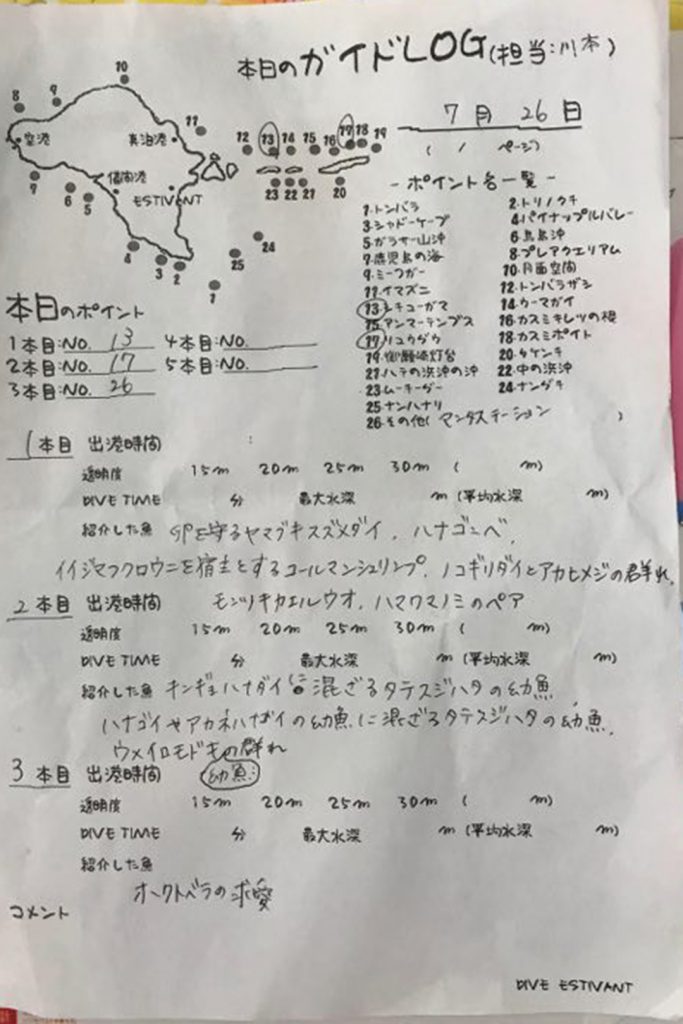 本日のガイドLOG(担当:川本)
7月 26日
( / ページ)
10
8 9
11
空港 真泊港
12 13 14 15 16 17 18 19
儀間港
7 6 5
ESTIVANT
23 22 21 20
4 3 2
24
25
1
-ポイント名一覧-
1.トンバラ 2.トリノクチ
3.シャドーケーブ 4.パイナップルバレー
5.ガラサー山沖 6.鳥島沖
7.鹿児島の海 8.プレアクエリアム
9.ミーフガー 10.月面空間
11.イマズニ 12.トンバラザシ
13.シチューガマ 14.ウーマガイ
15.アンマーテンプス 16.カスミキレツの根
17.リュウグウ 18.カスミポイント
19.御願崎灯台 20.タケンチ
21.ハテの浜沖の沖 22.中の浜沖
23.ムーチーグー 24.ナングチ
25.ナンハナリ
26.その他(マンタステーション )
本日のポイント
1本目:NO. 13 4本目:NO.
2本目:NO. 17 5本目:NO.
3本目:NO. 26
1本目 出港時間 :
透明度 15m 20m 25m 30m ( m)
DIVE TIME 分 最大水深 m (平均水深 m)
紹介した魚 SPを守るヤマブキスズメダイ、ハナゴンベ、
イイジマフクロウニを宿主とするコールマンシュリンプ、ノコギリダイとアカヒメジの群れ、
モンツキカエルウオ、ハマクマノミのペア
2本目 出港時間
透明度 15m 20m 25m 30m ( m)
DIVE TIME 分 最大水深 m (平均水深 m)
紹介した魚 キンギョハナダイに混ざるタテスジハタの幼魚
ハナゴイやアカネハナゴイの幼魚に混ざるタテスジハタの幼魚、
ウメイロモドキの群れ
幼魚
3本目 出港時間 :
透明度 15m 20m 25m 30m ( m)
DIVE TIME 分 最大水深 m (平均水深 m)
紹介した魚
オークトベラの求愛
コメント
DIVE ESTIVANT